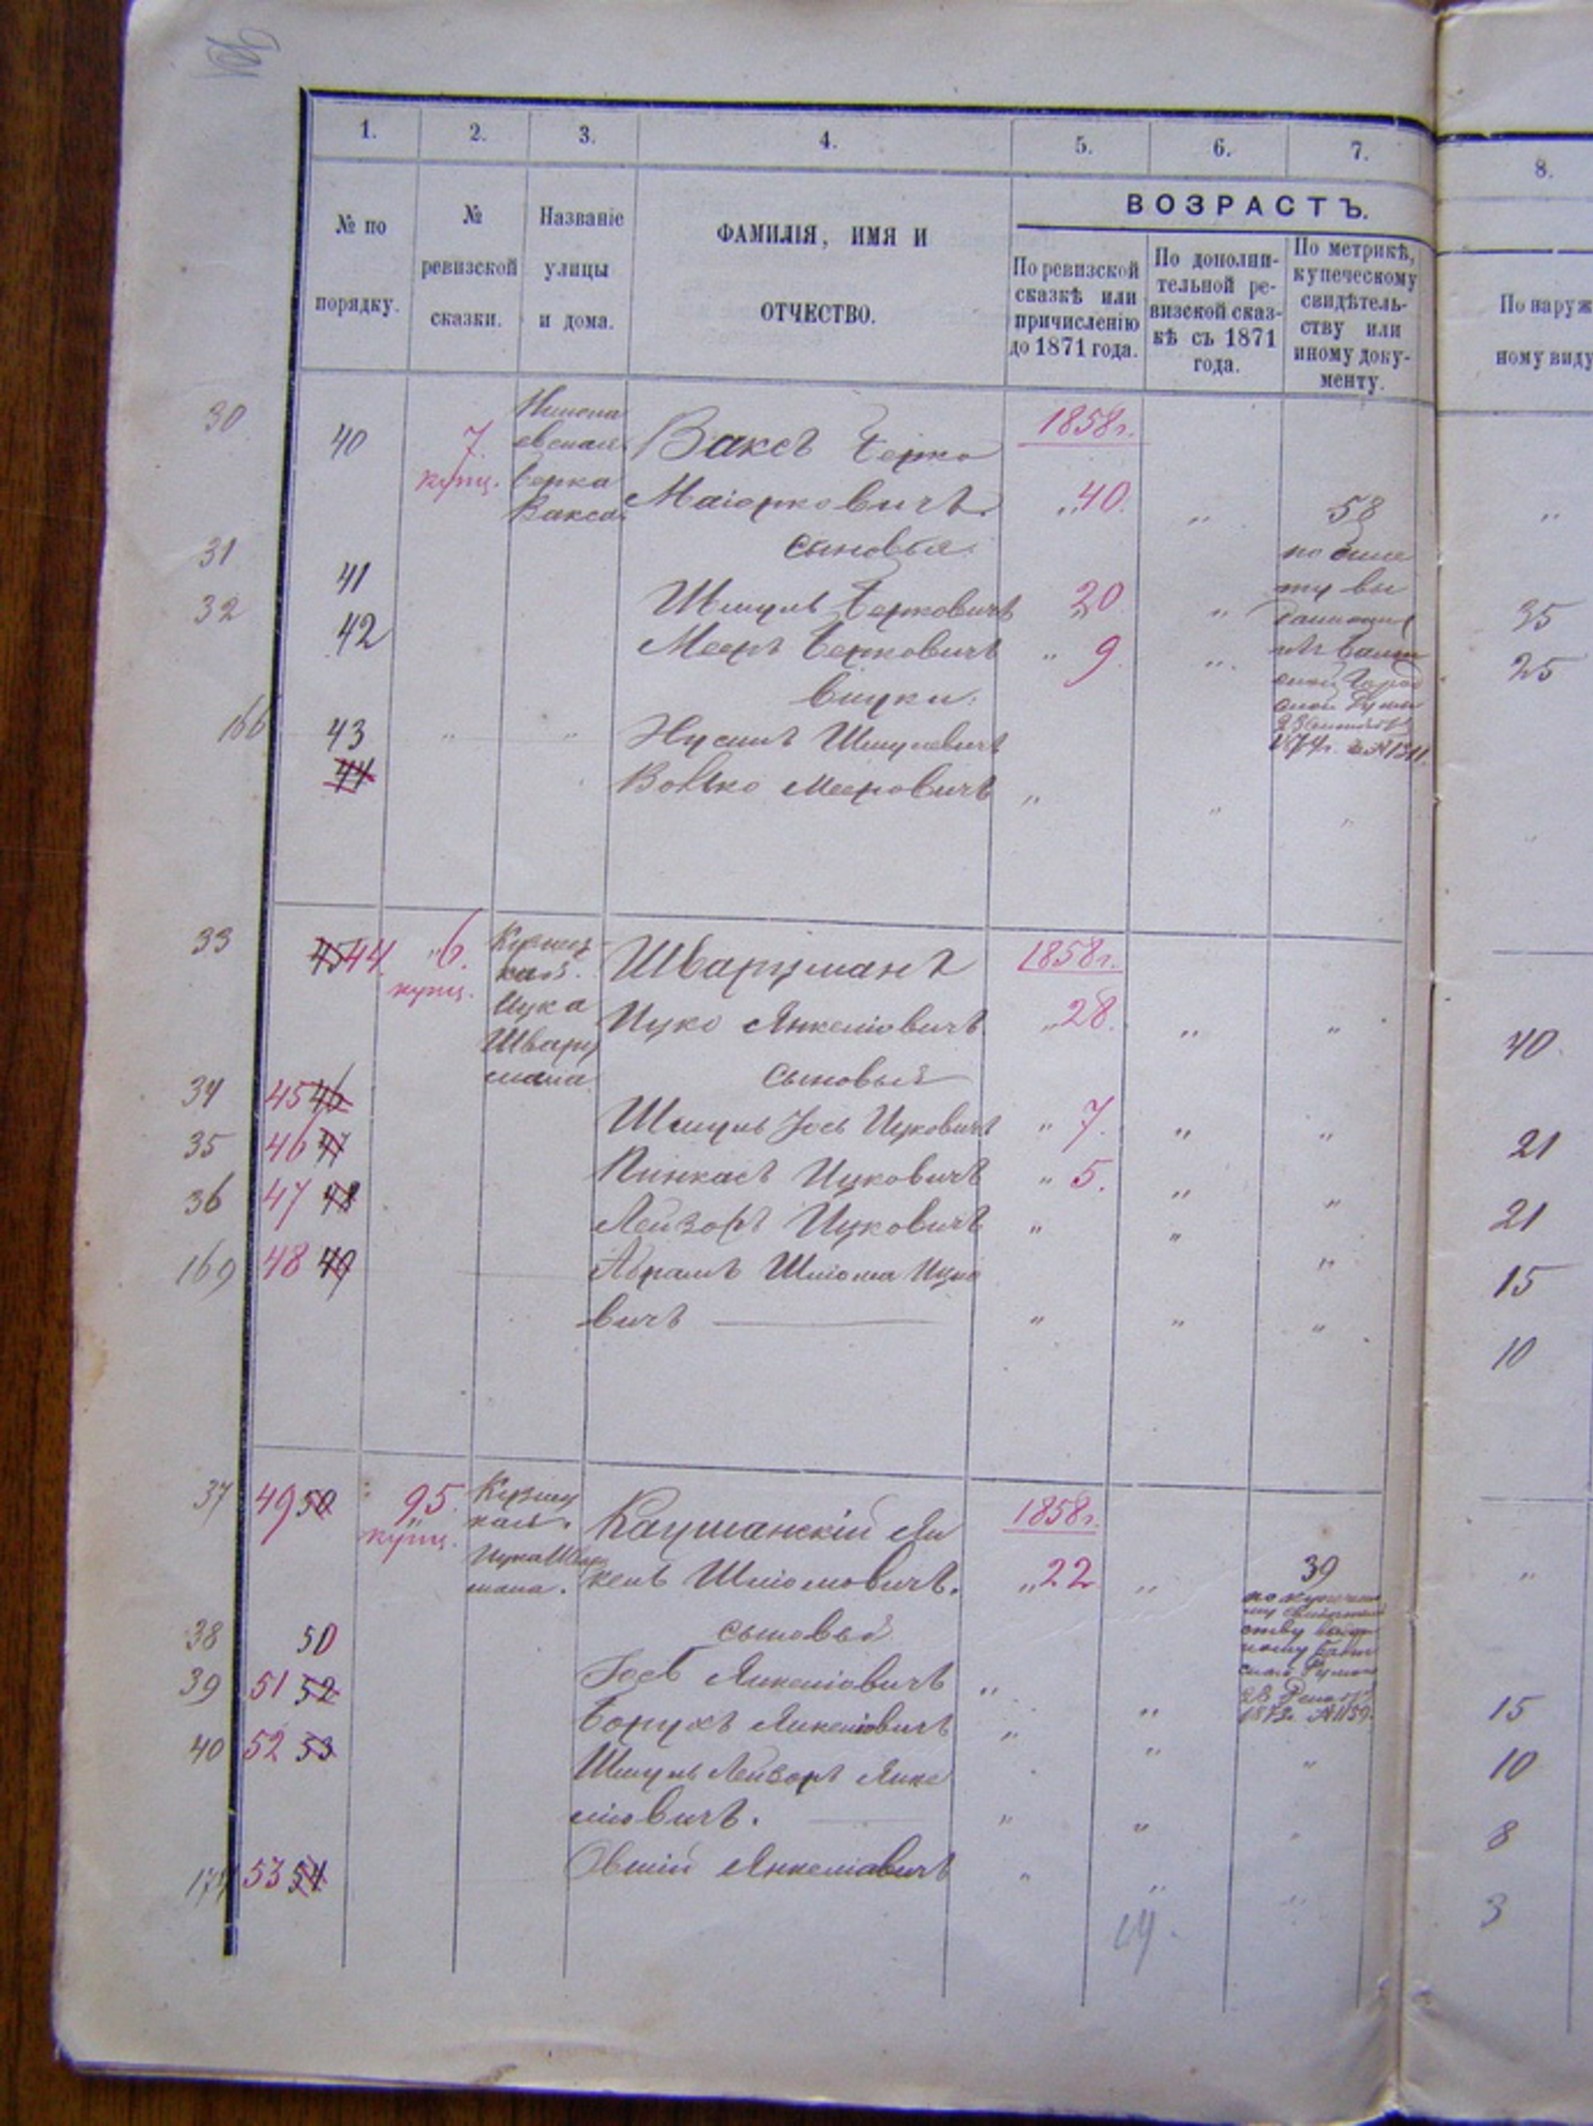 1. 2. 3. 4. 5. 6. 7. 8.
№ по порядку.
№ ревизской сказки.
Названіе улицы и дома.
ФАМИЛІЯ, ИМЯ И ОТЧЕСТВО.
ВОЗРАСТЪ.
По ревизской сказкѣ или причисленію до 1871 года.
По дополни-
тельной ре-
визской сказ-
кѣ съ 1871
года.
По метрикѣ,
купеческому
свидѣтель-
ству или
иному доку-
менту.
По наруж
ному виду
30 40 7. купц. Берка Вакса Ваксъ Берко 1858 г.
Маіорковичъ. „40. „ 58 „
сыновья
31 41 Шмуль Берковичъ 20 „ 35
32 42 Мееръ Берковичъ „ 9. „ 25
внуки:
166 43 „ „ Нусинъ Шмулевичъ
44 Волко Мееровичъ „ „ „ „
33 45 44. „6. купц. Ицка Шварц мана Шварцманъ 1858 г.
Ицко Янкеліовичъ. „28. „ „ 40.
сыновья
34 45 46 Шмуль Іось Ицковичъ „ 7. „ „ 21
35 46 47 Пинкасъ Ицковичъ „ 5. „ „ 21
36 47 48 Лейзоръ Ицковичъ „ „ „ 15
169 48 49 Абрамъ Шліома Ицко
вичъ „ „ „ 10
37 49 50 95. купц. Ицка Швар мана. Каушанскій Ян 1858 г.
кель Шліомовичъ. „22 „ 39 „
сыновья
38 50 Іось Янкеліовичъ „ „ 15
39 51 52 Борухъ Янкеліовичъ „ „ „ 10
40 52 53 Шмуль Лейзоръ Янке
ліовичъ. „ „ „ 8
53 54 Овшій Янкеліовичъ „ „ „ 3